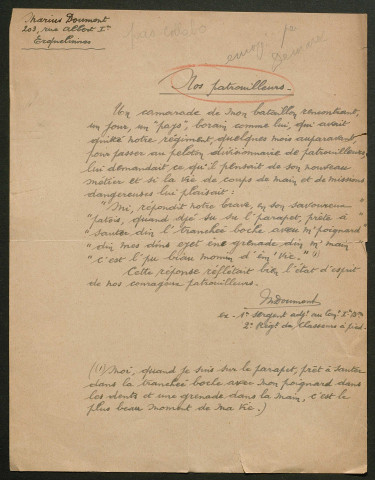 Marius Doumont
203, rue Albert Ier
Erquelinnes
Nos patrouilleurs.
Un camarade de mon bataillon rencontrant,
un jour, un "pays", borain comme lui, qui avait
quitté notre régiment quelques mois auparavant
pour passer au peloton divisionnaire de patrouilleurs
lui demandait ce qu'il pensait de son nouveau
métier et si la vie de coups de main et de missions
dangereuses lui plaisait:
"Mi, répondit notre brave, en son savoureux
"patois, quand djé su su l'parapet, prête à
"sauter din l'tranchée boche aveu m'poignard
"din mes dins eyet eine grenade din m'main
"c'est l'pu biau momin d'ém'vic." (1)
Cette réponse reflétait bien l'état d'esprit
de nos courageux patrouilleurs.
MDoumont
ex - 1er sergent adj. au
2e Régt de Chasseurs à pied.
((1) Moi, quand je suis sur le parapet, prêt à sauter
dans la tranchée boche avec mon poignard dans
les dents et une grenade dans la main, c'est le
plus beau moment de ma vie.)